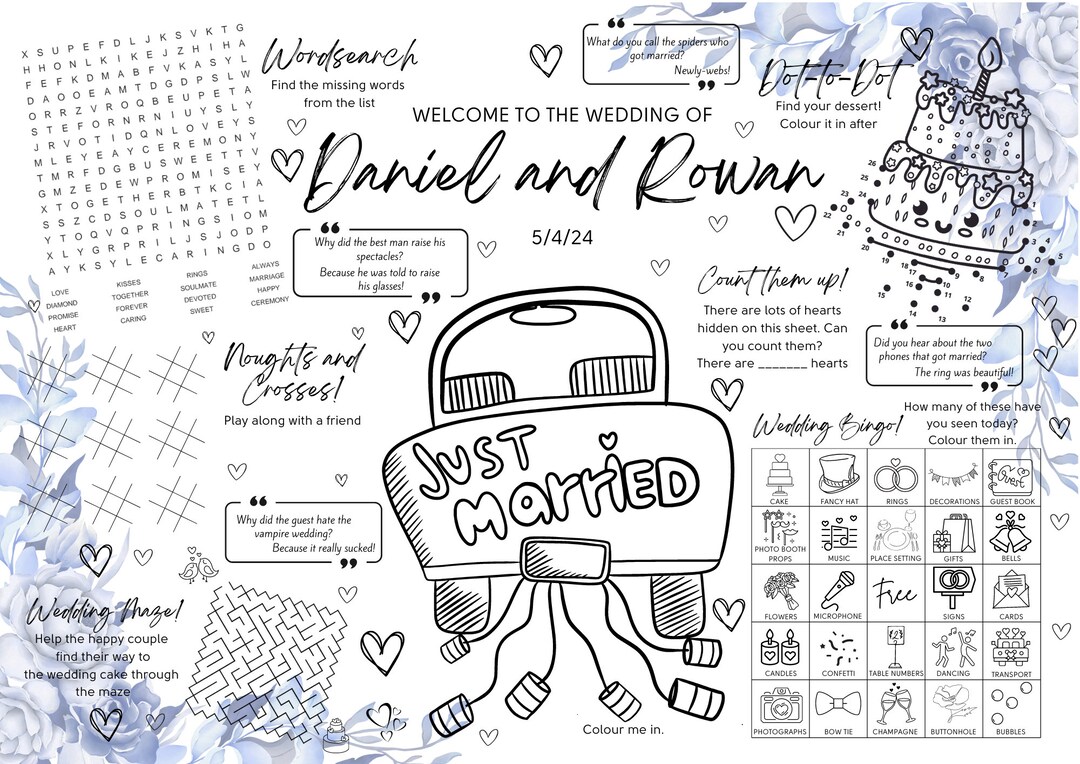 X S U P E F D L J K S V K T G
H H O N L K I K E J Z H I H A
F E F K D M A B F V K A S Y L
D A O O E A M T D G D P S L W
O R R Z V R O Q B E U P E T A
S T E F O R N R N I U Y S L Y
J R V O T I D Q N L O V E Y S
M L E Y E A Y C E R E M O N Y
T M R F D G B U S W E E T T V
G M Z E D E W P R O M I S E Y
X T O G E T H E R B T K C I A
S S Z C D S O U L M A T E T L
Y T O Q V Q P R I N G S I O M
X L Y G R P R I L J S J O D P
A Y K S Y L E C A R I N G D O
LOVE
DIAMOND
PROMISE
HEART
KISSES
TOGETHER
FOREVER
CARING
RINGS
SOULMATE
DEVOTED
SWEET
ALWAYS
MARRIAGE
HAPPY
CEREMONY
Wordsearch
Find the missing words
from the list
What do you call the spiders who
got married?
Newly-webs!
Dot-to-Dot
Find your dessert!
Colour it in after
WELCOME TO THE WEDDING OF
Daniel and Rowan
5/4/24
Why did the best man raise his
spectacles?
Because he was told to raise
his glasses!
26
25
23 24
22
21
20
19
18
17
16
15
14
13
12
11
10
9
8
7
6
5
4
3
2
1
Count them up!
There are lots of hearts
hidden on this sheet. Can
you count them?
There are _______ hearts
Did you hear about the two
phones that got married?
The ring was beautiful!
Noughts and
Crosses!
Play along with a friend
JUST
MARRIED
Why did the guest hate the
vampire wedding?
Because it really sucked!
Wedding Maze!
Help the happy couple
find their way to
the wedding cake through
the maze
Colour me in.
Wedding Bingo!
How many of these have
you seen today?
Colour them in.
Guest
CAKE
FANCY HAT
RINGS
DECORATIONS
GUEST BOOK
PHOTO BOOTH
PROPS
MUSIC
PLACE SETTING
GIFTS
BELLS
FLOWERS
MICROPHONE
Free
SIGNS
CARDS
CANDLES
CONFETTI
TABLE NUMBERS
DANCING
TRANSPORT
PHOTOGRAPHS
BOW TIE
CHAMPAGNE
BUTTONHOLE
BUBBLES